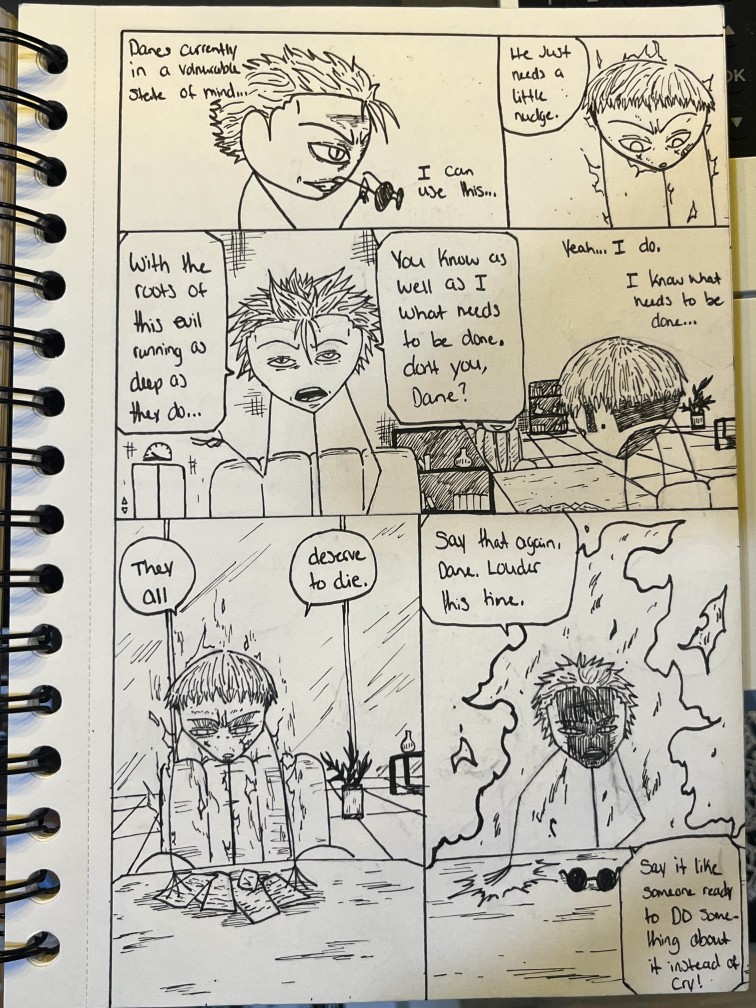 Danes currently
in a vulnurable
state of mind...
I can
use this...
He Just
needs a
little
nudge.
With the
roots of
this evil
running as
deep as
they do...
You know as
well as I
what needs
to be done.
don't you,
Dane?
Yeah... I do.
I know what
needs to be
done...
They
all
deserve
to die.
Say that again,
Dane. Louder
this time.
Say it like
someone ready
to DO some-
thing about
it instead of
Cry!
OK